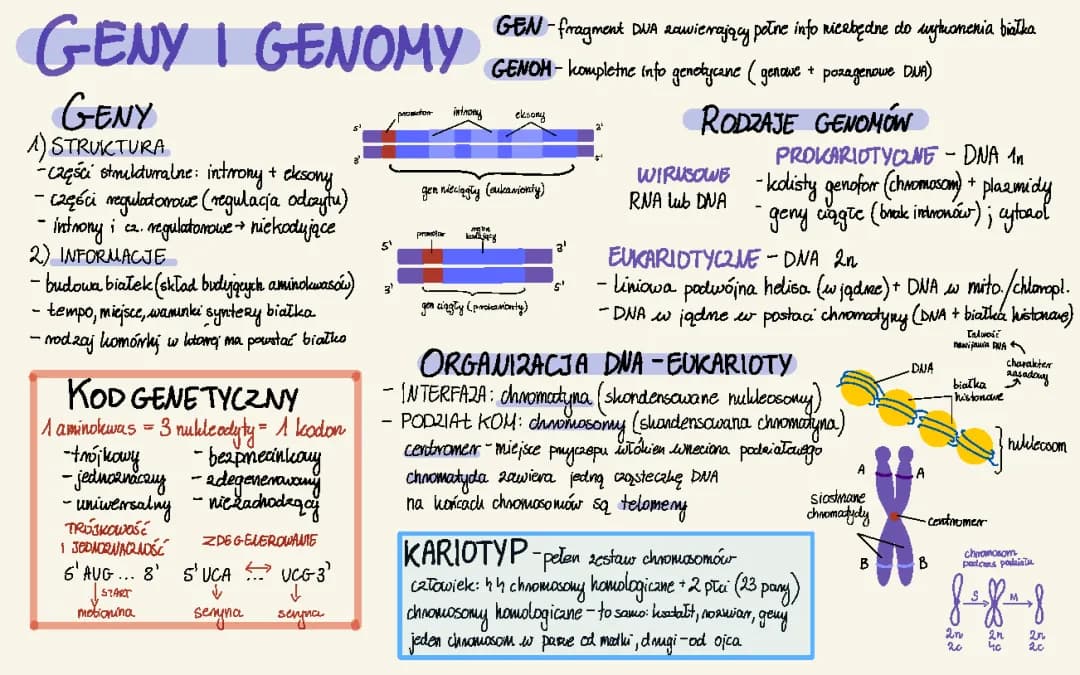 GENY I GENOMY
GEN - fragment DNA zawierający pełne info niezbędne do wytworzenia białka
GENOM - kompletne info genetyczne (genowe + pozagenowe DNA)
GENY
1) STRUKTURA
- części strukturalne: introny + eksony
- części regulatorowe (regulacja odczytu)
- introny i cz. regulatorowe → niekodujące
2) INFORMACJE
- budowa białek (skład budujących aminokwasów)
- tempo, miejsce, warunki syntezy białka
- rodzaj komórki w której ma powstać białko
promotor introny eksony
5' 3'
3' 5'
gen nieciągły (eukarionty)
promotor
5' 3'
3' 5'
gen ciągły (prokarionty)
RODZAJE GENOMÓW
WIRUSOWE
RNA lub DNA
PROKARIOTYCZNE - DNA 1n
- kolisty genofor (chromosom) + plazmidy
- geny ciągłe (brak intronów); cytozol
EUKARIOTYCZNE - DNA 2n
- liniowa podwójna helisa (w jądrze) + DNA w mito./chloropl.
- DNA w jądrze w postaci chromatyny (DNA + białka histonowe)
KOD GENETYCZNY
1 aminokwas = 3 nukleotydy = 1 kodon
- trójkowy
- jednoznaczny
- uniwersalny
- bezprzecinkowy
- zdegenerowany
- niezachodzący
TRÓJKOWOŚĆ
I JEDNOZNACZNOŚĆ
5' AUG ... 3'
START
metionina
ZDEGENEROWANIE
5' UCA ... UCG 3'
seryna seryna
ORGANIZACJA DNA - EUKARIOTY
- INTERFAZA: chromatyna (skondensowane nukleosomy)
- PODZIAŁ KOM: chromosomy (skondensowana chromatyna)
centromer - miejsce przyczepu włókien wrzeciona podziałowego
chromatyda zawiera jedną cząsteczkę DNA
na końcach chromosomów są telomery
KARIOTYP - pełen zestaw chromosomów
człowiek: 44 chromosomy homologiczne + 2 płci (23 pary)
chromosomy homologiczne - to samo: kształt, rozmiar, geny
jeden chromosom w parze od matki, drugi - od ojca
łatwość
nawijania DNA
charakter
zasadowy
DNA
białka
histonowe
nukleosom
A A
siostrzane
chromatydy
centromer
B B
chromosom
podczas podziału
S M
2n 2n 2n
2c 4c 2c